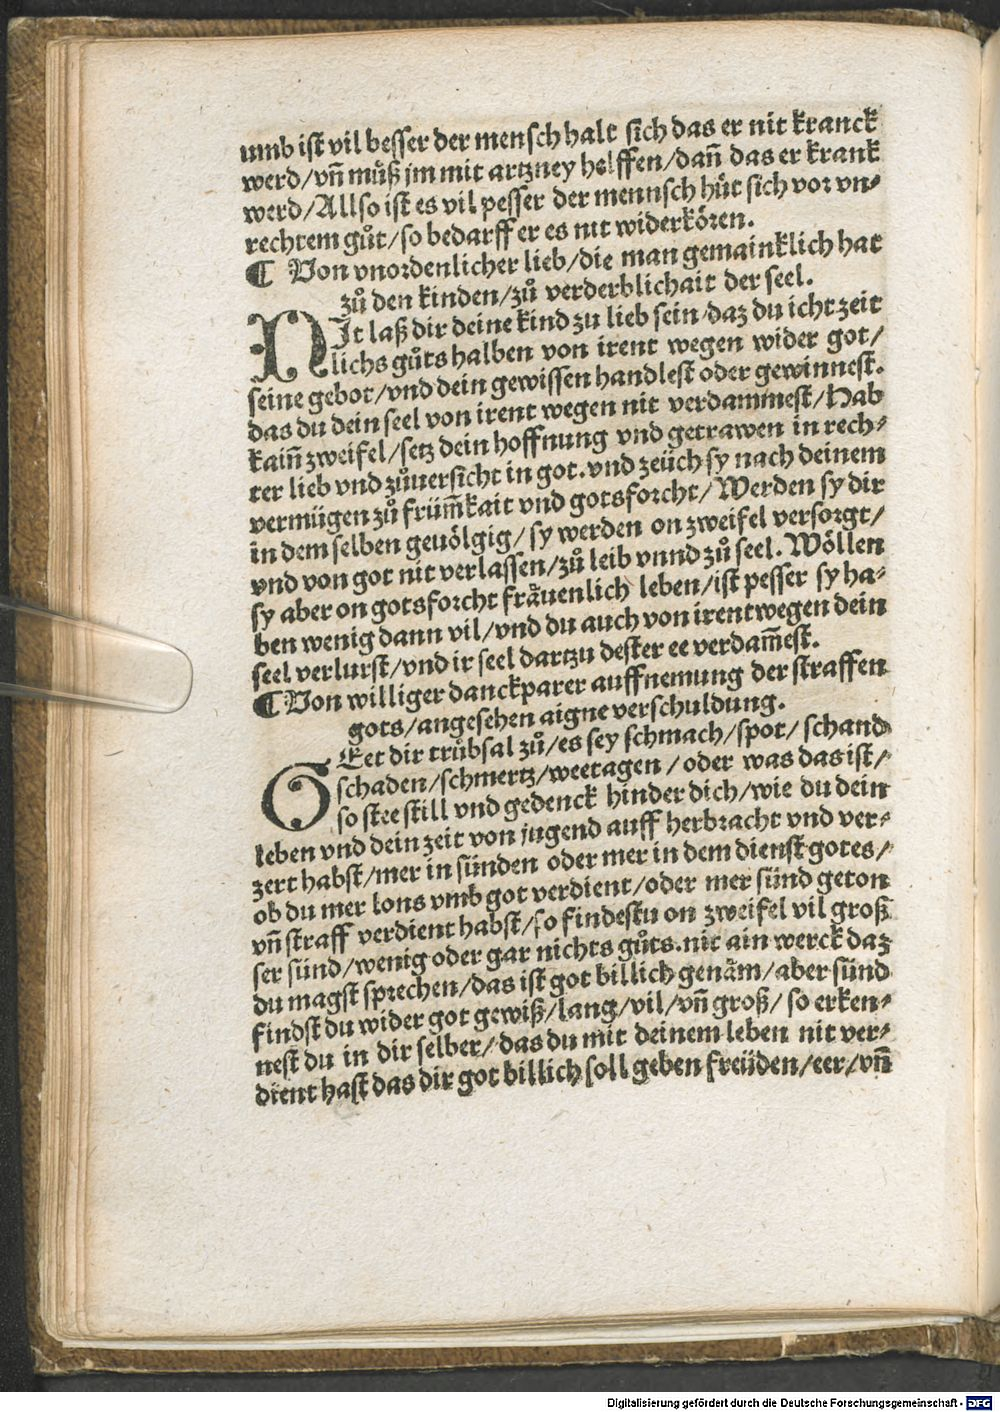 umb ist vil besser der mensch halt sich das er nit kranck
werd/vn̄ můß jm mit artzney helffen/dan̄ das er krank
werd/Allso ist es vil pesser der mennsch hůt sich vor vn⸗
rechtem gůt/so bedarff er es nit widerkören.
¶ Von vnordenlicher lieb/die man gemainklich hat
zů den kinden/zů verderblichait der seel.
NIt laß dir deine kind zu lieb sein/daz du icht zeit
lichs gůts halben von irent wegen wider got/
seine gebot/vnd dein gewissen handlest oder gewinnest.
das du dein seel von irent wegen nit verdammest/Hab
kain̄ zweifel/setz dein hoffnung vnd getrawen in rech⸗
ter lieb vnd zůuersicht in got.vnd zeüch sy nach deinem
vermügen zů früm̄kait vnd gotsforcht/Werden sy dir
in dem selben geuölgig/sy werden on zweifel versorgt/
vnd von got nit verlassen/zů leib vnnd zů seel. Wöllen
sy aber on gotsforcht fräuenlich leben/ist pesser sy ha⸗
ben wenig dann vil/vnd du auch von irentwegen dein
seel verlurst/vnd ir seel dartzu dester ee verdam̄est.
¶ Von williger danckparer auffnemung der straffen
gots/angesehen aigne verschuldung.
GEet dir trůbsal zů/es sey schmach/spot/schand
schaden/schmertz/weetagen/oder was das ist/
so stee still vnd gedenck hinder dich/wie du dein
leben vnd dein zeit von jugend auff herbracht vnd ver⸗
zert habst/mer in sünden oder mer in dem dienst gotes/
ob du mer lons vmb got verdient/oder mer sünd geton
vn̄ straff verdient habst/so findestu on zweifel vil groß
ser sünd/wenig oder gar nichts gůts.nit ain werck daz
du magst sprechen/das ist got billich genäm/aber sünd
findst du wider got gewiß/lang/vil/vn̄ groß/so erken⸗
nest du in dir selber/das du mit deinem leben nit ver⸗
dient hast das dir got billich soll geben freüden/eer/vn̄
Digitalisierung gefördert durch die Deutsche Forschungsgemeinschaft - DFG